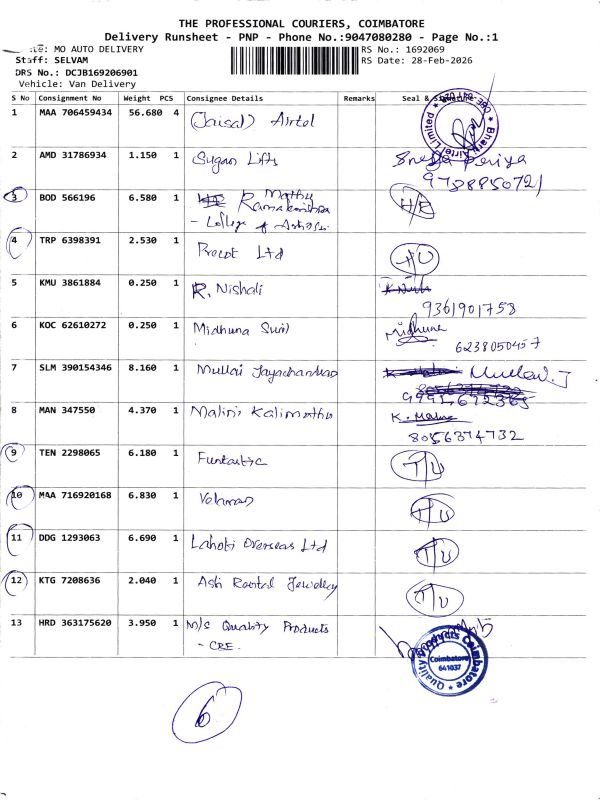 THE PROFESSIONAL COURIERS, COIMBATORE
Delivery Runsheet - PNP - Phone No.:9047080280 - Page No.:1
MO AUTO DELIVERY
RS No.: 1692069
Staff: SELVAM
RS Date: 28-Feb-2026
DRS No.: DCJB169206901
Vehicle: Van Delivery
S No Consignment No Weight PCS Consignee Details Remarks Seal &
1 MAA 706459434 56.680 4 (Jaisal) Airtel
Bharti Airtel Limited
2 AMD 31786934 1.150 1 Sugan Lifts Sneha Periya
9788850721
3 BOD 566196 6.580 1 Mathu
Ramakrishna H/R
- College of
4 TRP 6398391 2.530 1 Precot Ltd T/U
5 KMU 3861884 0.250 1 R. Nishali
9361901758
6 KOC 62610272 0.250 1 Midhuna Sunil Midhuna
6238050457
7 SLM 390154346 8.160 1 Mullai Jayachandran Mullai. J
8 MAN 347550 4.370 1 Malini Kalimuthu K. Malini
8056374732
9 TEN 2298065 6.180 1 Funtastic T/U
10 MAA 716920168 6.830 1 T/U
11 DDG 1293063 6.690 1 Lahoti Overseas Ltd T/U
12 KTG 7208636 2.040 1 Ash Rental Jewellery T/U
13 HRD 363175620 3.950 1 M/s Quality Products
- CBE.
Quality Products Coimbatore
Coimbatore
641037
6